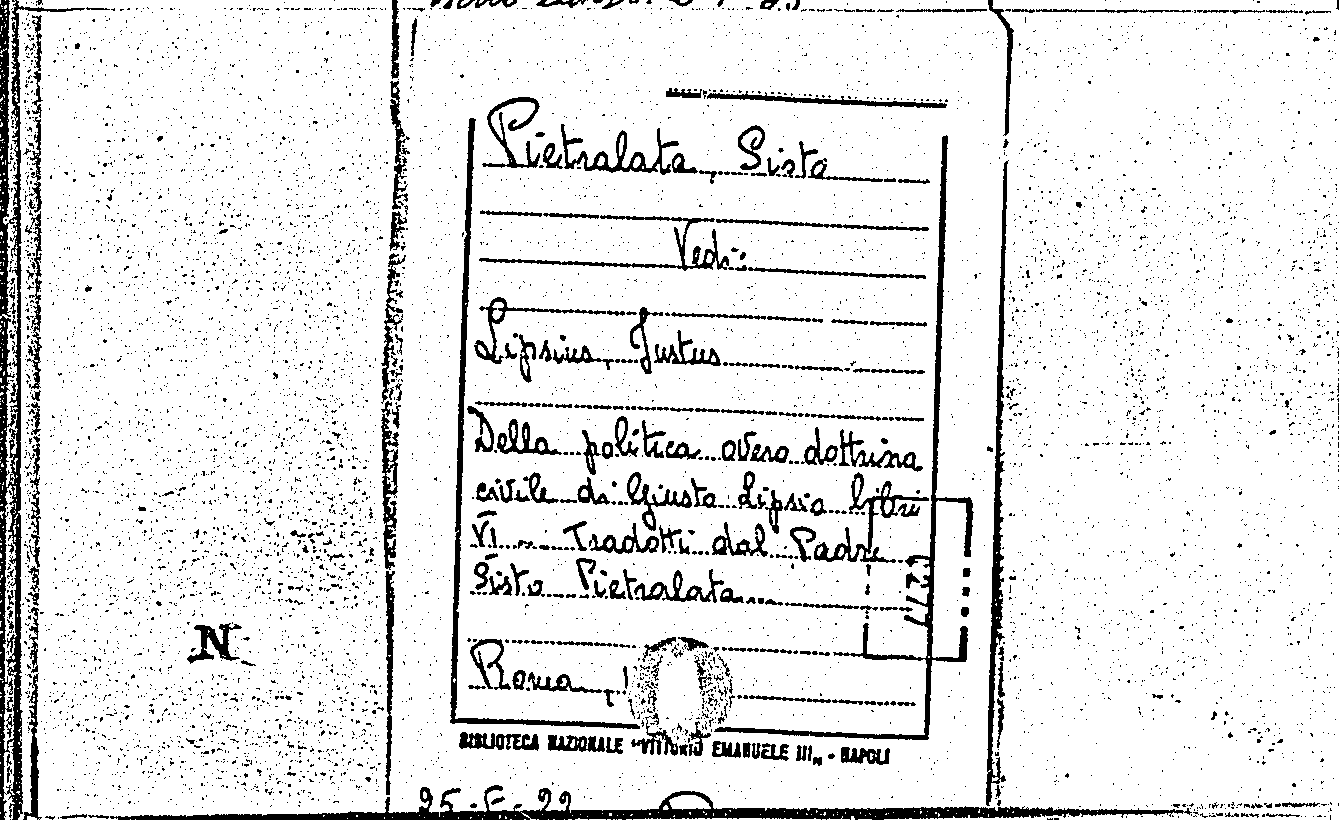 Pietralata, Sisto
Vedi:
Lipsius, Justus
Della politica overo dottrina
civile di Giusto Lipsio libri
VI - Tradotti dal Padre
Sisto Pietralata...
Roma,
BIBLIOTECA NAZIONALE "VITTORIO EMANUELE III„ - NAPOLI
N